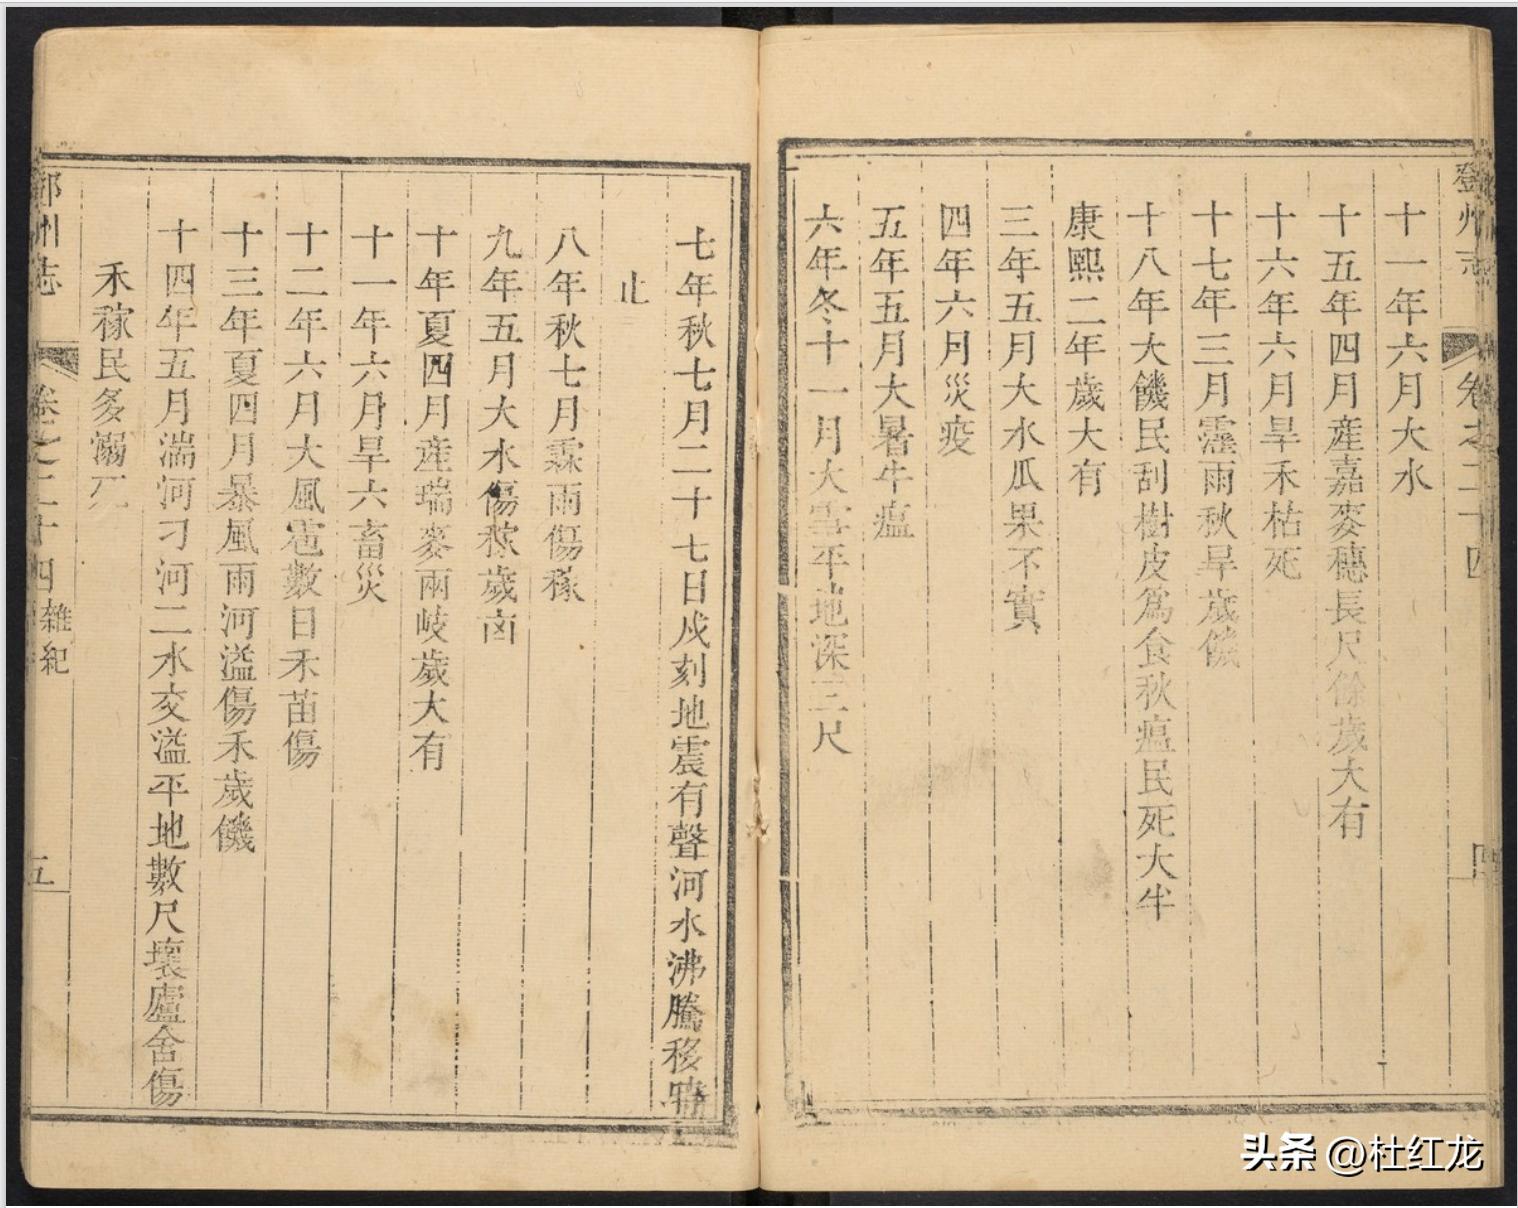 鄧州志
卷之二十四
十一年六月大水
十五年四月産嘉麥穗長尺餘歲大有
十六年六月旱禾枯死
十七年三月霪雨秋旱歲饑
十八年大饑民刮樹皮爲食秋瘟民死大半
康熙二年歲大有
三年五月大水瓜果不實
四年六月災疫
五年五月大暑牛瘟
六年冬十一月大雪平地深三尺
七年秋七月二十七日戍刻地震有聲河水沸騰移時
止
八年秋七月霖雨傷稼
九年五月大水傷稼歲凶
十年夏四月産瑞麥兩岐歲大有
十一年六月旱六畜災
十二年六月大風雹數日禾苗傷
十三年夏四月暴風雨河溢傷禾歲饑
十四年五月湍河刁河二水交溢平地數尺壞廬舍傷
禾稼民多溺死
鄧州志
卷之二十四
雜紀
五
头条 @杜红龙